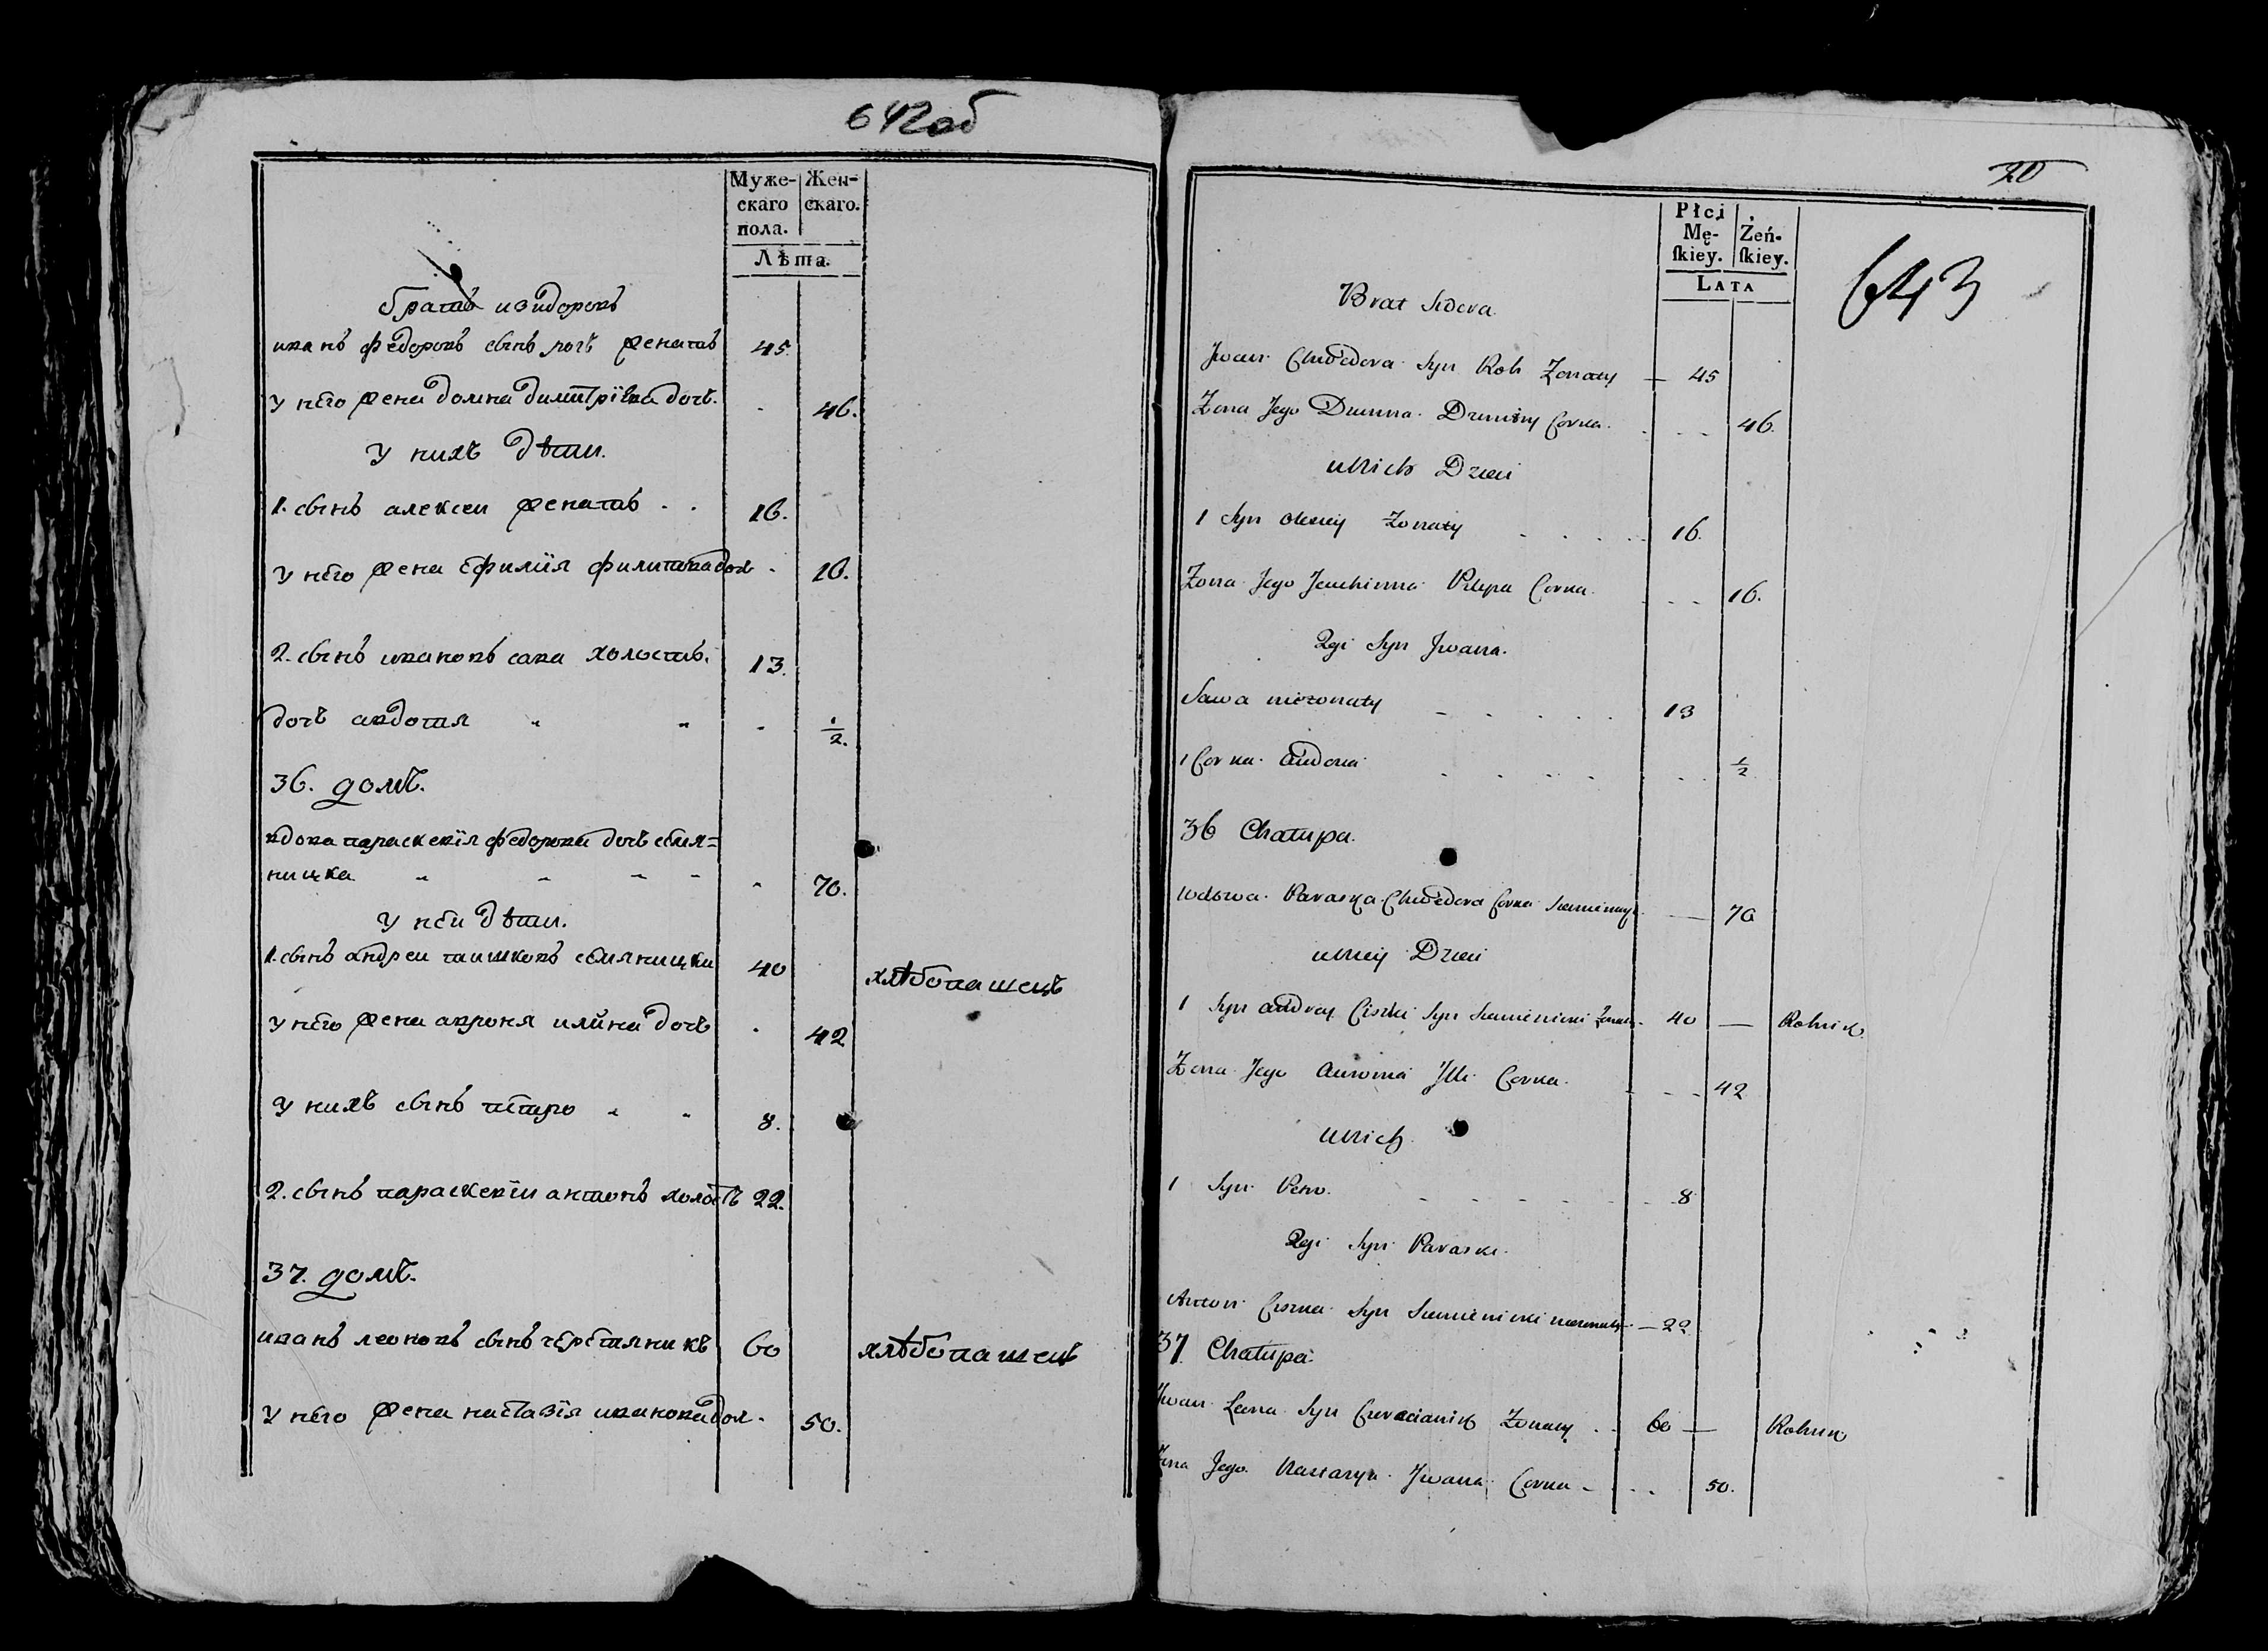 642об
Муже-
скаго
пола.
Жен-
скаго.
Лѣта.
братъ изидоровъ
иванъ федоровъ сынъ рогъ женатъ 45.
у него жена домна димитріева доч. 46.
у нихъ дѣти.
1. сынъ алексеи женатъ . . 16.
у него жена ефимія филипова доч. 16.
2. сынъ ивановъ сава холостъ. 13.
дочъ авдотія " " - 1/2.
36. домъ.
вдова параскевія федорова дочъ семя=
ницка 70.
у неи дѣти.
1. сынъ андреи тишковъ семяницки 40 хлѣбопашецъ
у него жена авроня илина дочъ 42
у нихъ сынъ петро 8.
2. сынъ параскевіи антонъ холостъ 22.
37. домъ.
иванъ леоновъ сынъ черетяникъ 60 хлѣбопашецъ
у него жена настазія иванова доч. 50.
20
643
Płci
Mę-
ſkiey.
Żeń-
ſkiey.
LATA
Brat Sidora
Jwan Chwedora Syn Roh Zonaty — 45
Zona Jego Dumna Dmitry Corka 46.
u Nich Dzieci
1 Syn Olexiey Zonaty 16.
Zona Jego Jeuchimna Pilipa Corka 16.
2gi Syn Jwana.
Sawa niezonaty 13
1 Corka Audotia 1/2
36 Chatupa.
Wdowa Paraska Chwedora Corka 70
u Niey Dzieci
1 Syn Andrey Ciszki Syn Siemienicki 40 — Rolnik
Zona Jego Corka 42
u Nich
1 Syn Petro 8
2gi Syn Paraski
Anton Ciszka Syn Siemienicki niezonaty — 22
37. Chatupa
Jwan Leona Syn Zonaty 60 — Rolnik
Zona Jego Nastazya Jwana Corka 50.